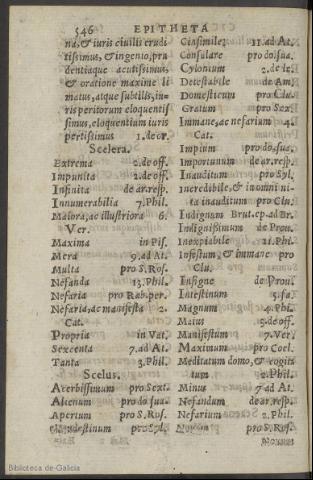 546 EPITHETA
na, & iuris ciuilis erudi
tissimus, & ingenio, pru
dentiaque acutissimus,
& oratione maxime li
matus, atque subtilis, iu-
ris peritorum eloquentis
simus, eloquentium iuris
peritissimus 1. de or.
Scelera.
Extrema 2. de off.
Impunita 2. de off.
Infinita de ar. resp.
Innumerabilia 7. Phil.
Maiora, ac illustriora 6.
Ver.
Maxima in Pis.
Mera 9. ad At.
Multa pro S. Ros.
Nefanda 13. Phil.
Nefaria pro Rab. per.
Nefaria, ac manifesta 2.
Cat.
Propria in Vat.
Sexcenta 7. ad At.
Tanta 3. Phil.
Scelus.
Acerbissimum pro Sext.
Alienum pro do. sua.
Apertum pro S. Ros.
Clandestinum pro Syl.
Consimile; 11. ad At.
Consulare pro do. sua.
Cylonium 2. de le.
Detestabile de Am.
Domesticum pro Clu.
Gratum pro Sex.
Immane, ac nefarium 4.
Cat.
Impium pro do. sua.
Importunum de ar. resp.
Inauditum pro Syl.
Incredibile, & in omni ui
ta inauditum pro Clu.
Indignum Brut. ep. ad Br.
Indignissimum de Prou.
Inexpiabile 11. Phil.
Infestum, & immane pro
Clu.
Insigne de Proui.
Intestinum 5. fa.
Magnum 4. Phi.
Maius 5. de off.
Manifestum 7. Ver.
Maximum pro Coel.
Meditatum domo, & cogita
tum 2. Phil.
Minus 7 ad At.
Nefandum de ar. resp.
Nefarium 2. Phil.
pro S. Ros.
Biblioteca de Galicia